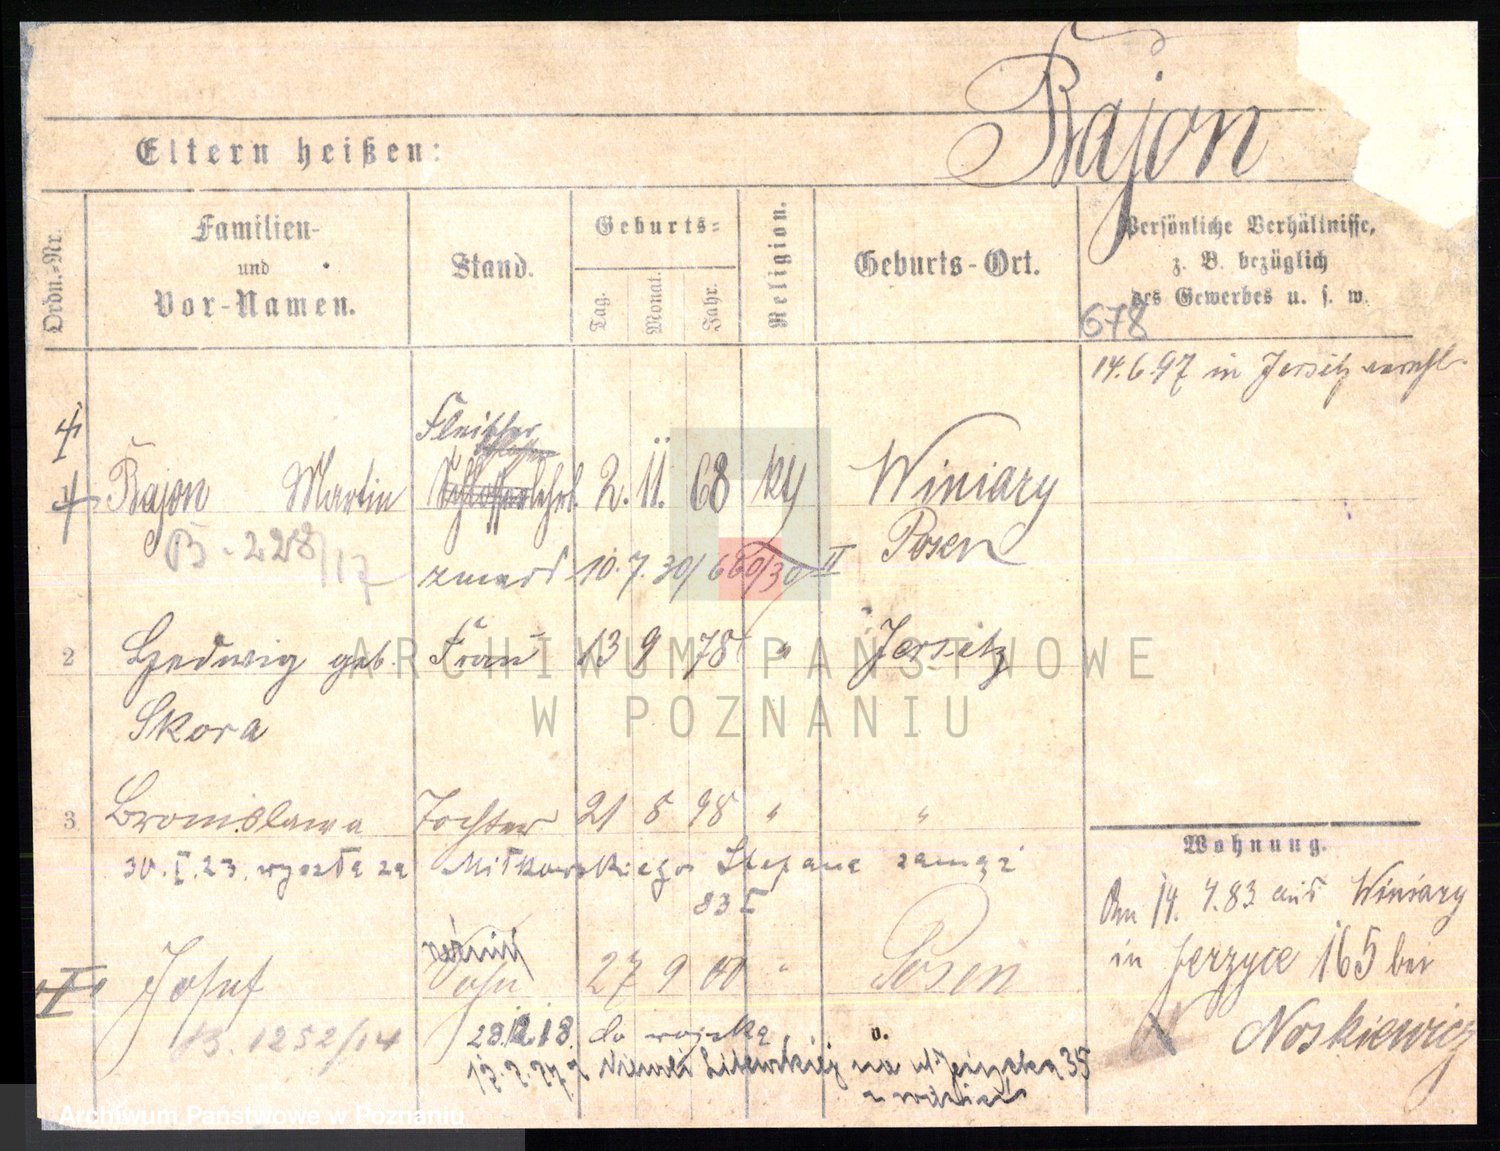 Bajon
Eltern heißen:
Ordn.-Nr.
Familien-
und
Vor-Namen.
Stand.
Geburts-
Tag.
Monat.
Jahr.
Religion.
Geburts-Ort.
Persönliche Verhältnisse,
z. B. bezüglich
des Gewerbes u. s. w.
678
14.6.97 in Jersitz verehl.
Bajon Martin 2. 11. 68 Winiary
B. 228/17 Posen
zmarł 10.7.30/660/30 II
2 Hedwig geb. Frau 13 9 78 " Jersitz
Skora
3 Bronislawa Tochter 21 8 98 " "
30.I.23. wyszła za Miłkowskiego Stefana zamąż
83 I
Josef Sohn 27 9 00 " Posen
B. 1252/14 28.12.18. do wojska
z Niewoli Litewskiej na ul 35
Wohnung.
Am 14. 7.83 aus Winiary
in Jerzyce 165 bei
Noskiewicz
ARCHIWUM PAŃSTWOWE
W POZNANIU
Archiwum Państwowe w Poznaniu